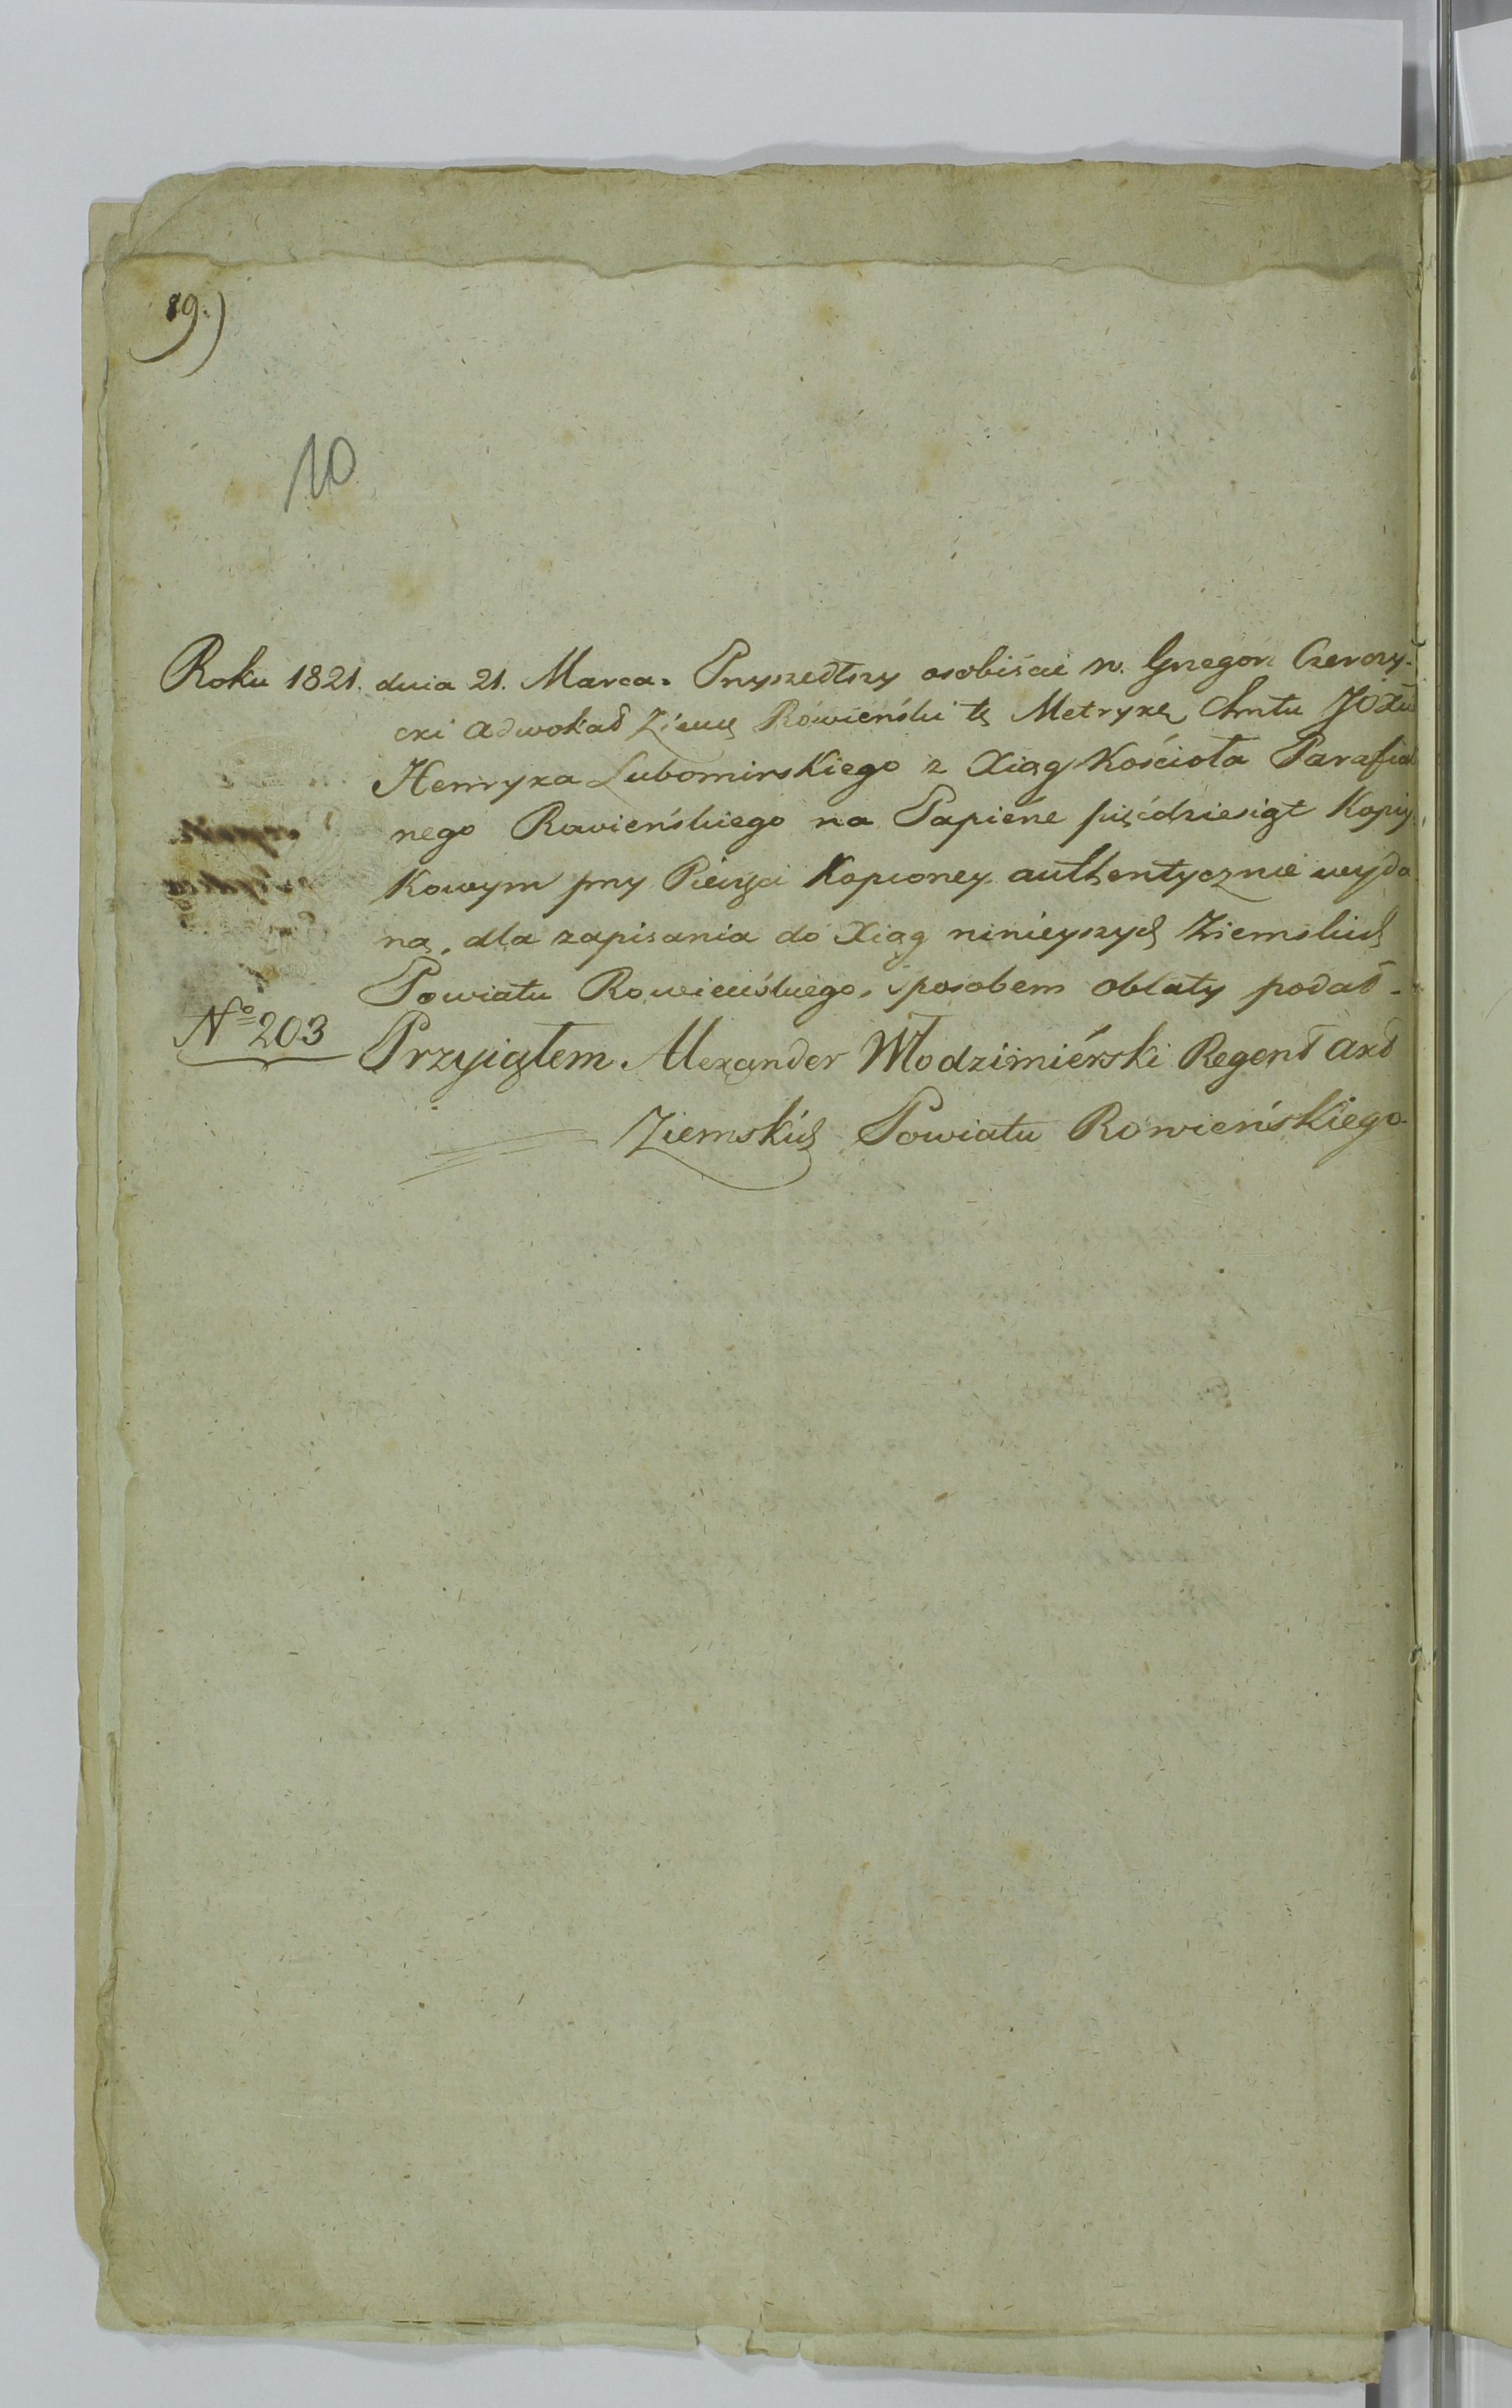 19.)
10
Roku 1821. dnia 21. Marca. Przyszedłszy osobiście w. Grzegorz Czerczy-
cki Adwokat Ziems Rówieński tę Metrykę Chrztu JO Xcia
Henryka Lubomirskiego z Xiąg Kościoła Parafial
nego Rowieńskiego na Papierze pięćdziesiąt Kopiy
Kowym przy Pieczęci Kościoney authentycznie wyda
ną, dla zapisania do Xiąg ninieyszych Ziemskich
Powiatu Rowieńskiego, sposobem oblaty podał.
No 203
Przyiąłem Alexander Włodzimiérski Regent Akt
Ziemskich Powiatu Rowieńskiego